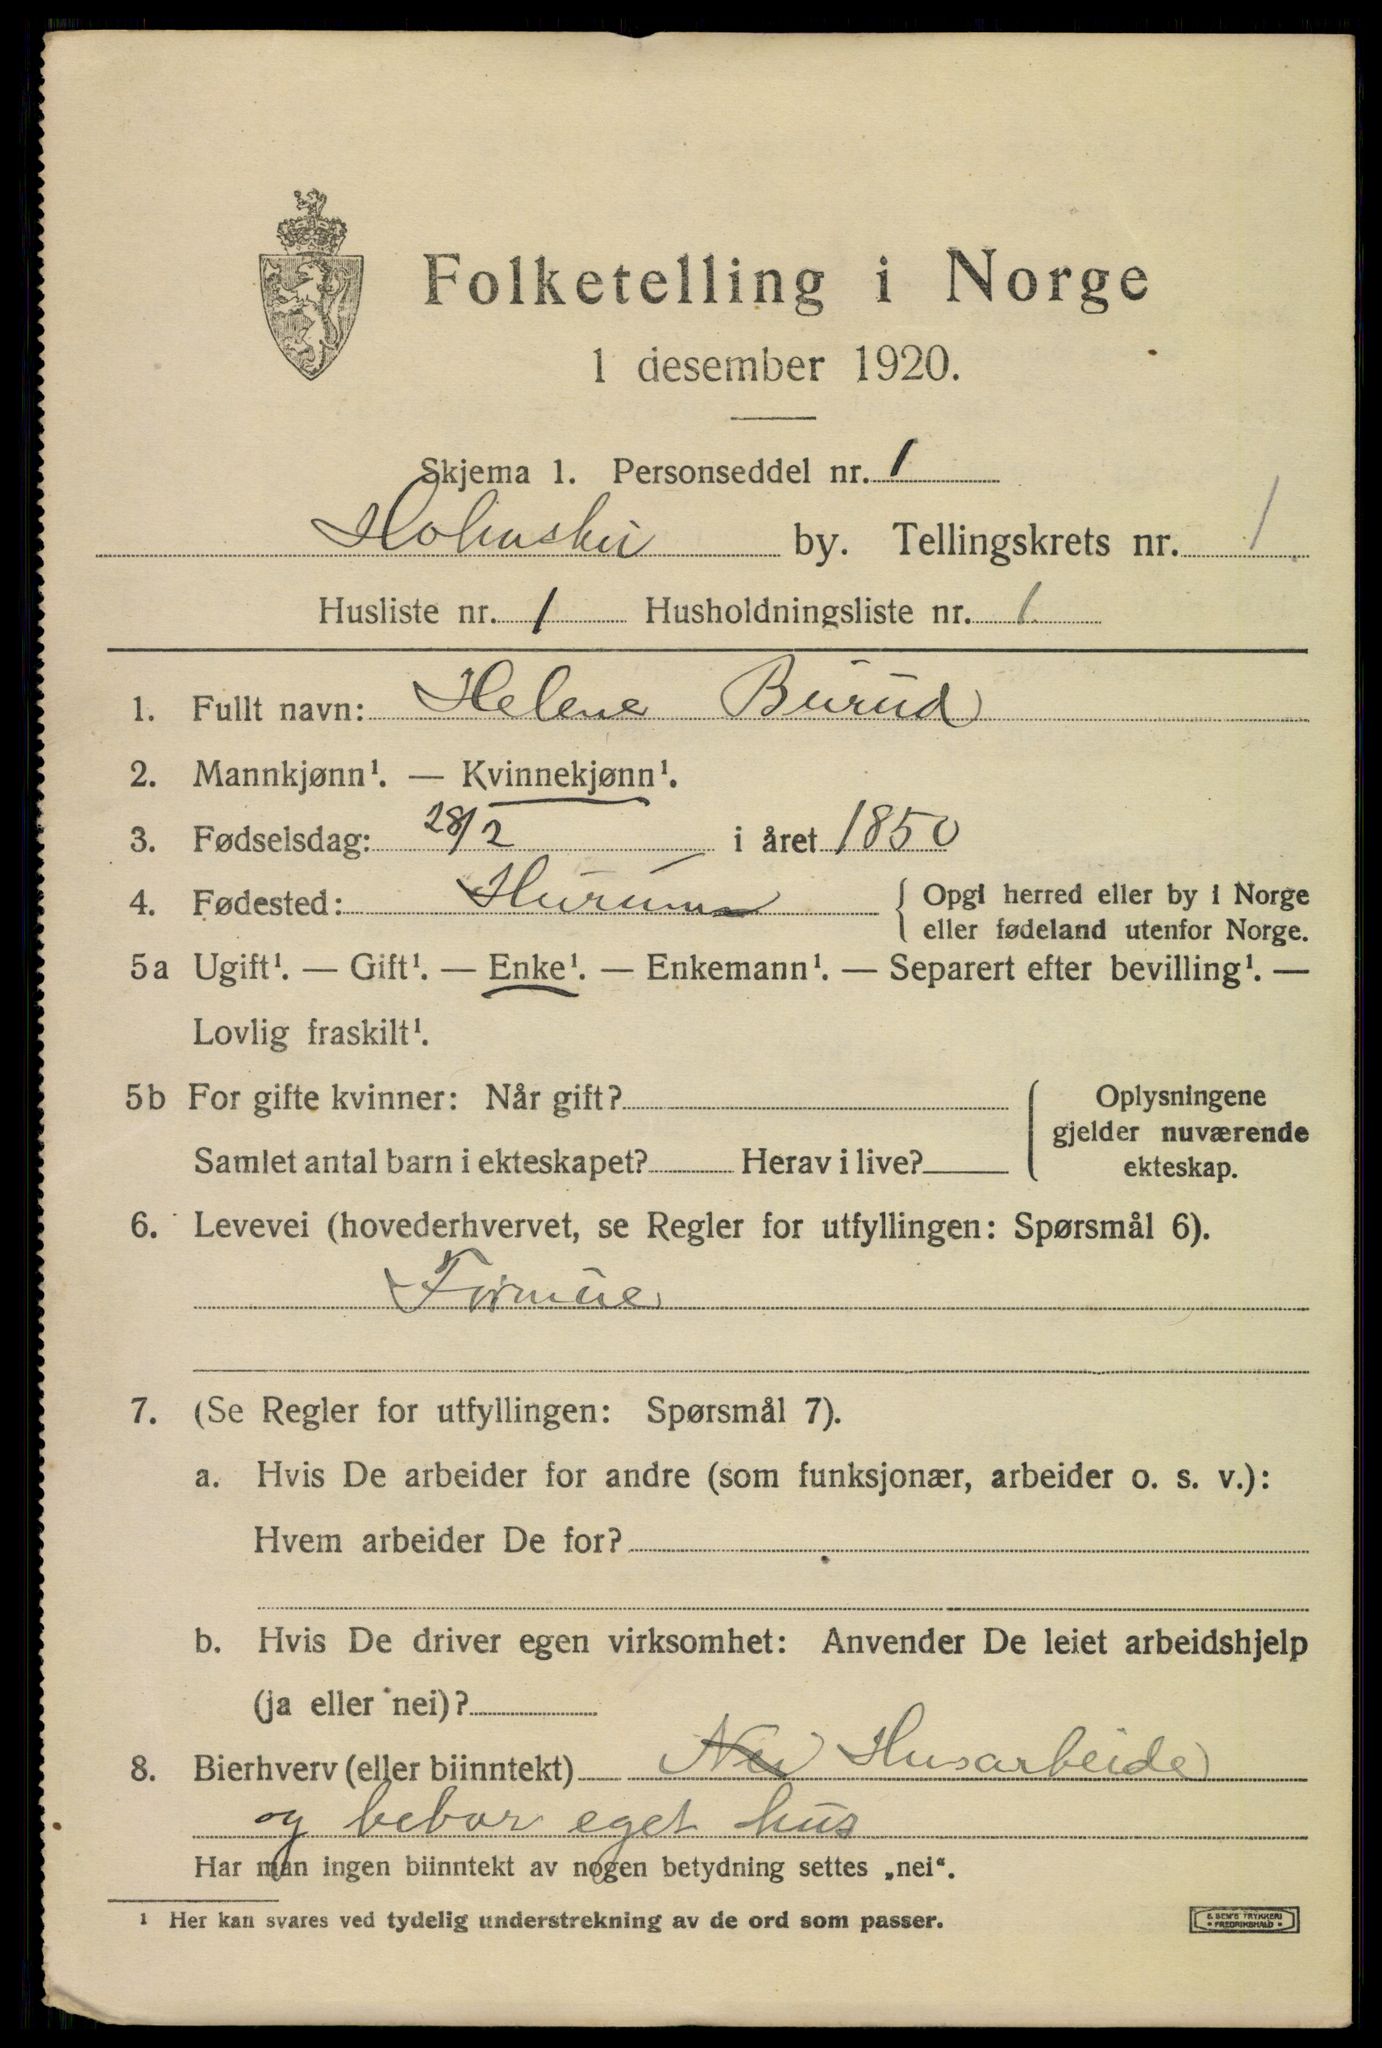 Folketelling i Norge
1 desember 1920.
Skjema 1. Personseddel nr. 1
Holmsbu by. Tellingskrets nr. 1
Husliste nr. 1 Husholdningsliste nr. 1
1. Fullt navn: Helene Burud
2. Mannkjønn¹. — Kvinnekjønn¹.
3. Fødselsdag: 28/2 i året 1850
4. Fødested: Hurum { Opgi herred eller by i Norge
eller fødeland utenfor Norge.
5a Ugift¹. — Gift¹. — Enke¹. — Enkemann¹. — Separert efter bevilling¹. —
Lovlig fraskilt¹.
5b For gifte kvinner: Når gift? { Oplysningene
gjelder nuværende
Samlet antal barn i ekteskapet? Herav i live? ekteskap.
6. Levevei (hovederhvervet, se Regler for utfyllingen: Spørsmål 6).
Formue
7. (Se Regler for utfyllingen: Spørsmål 7).
a. Hvis De arbeider for andre (som funksjonær, arbeider o. s. v.):
Hvem arbeider De for?
b. Hvis De driver egen virksomhet: Anvender De leiet arbeidshjelp
(ja eller nei)?
8. Bierhverv (eller biinntekt) Nei Husarbeide
og bebor eget hus
Har man ingen biinntekt av nogen betydning settes „nei“.
¹ Her kan svares ved tydelig understrekning av de ord som passer.
E. SEM'S TRYKKERI
• FREDRIKSHALD •